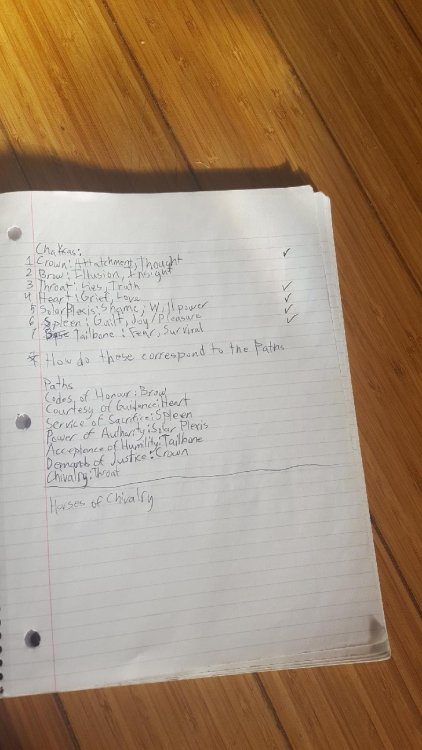 Chakras:
1 Crown: Attatchment, Thought ✓
2 Brow: Illusion, Insight
3 Throat: Lies, Truth ✓
4 Heart: Grief, Love ✓
5 Solar Plexis: Shame, Willpower ✓
6 Spleen: Guilt, Joy/Pleasure ✓
Tailbone: Fear, Survival
* How do these correspond to the Paths
Paths
Codes of Honour: Brow
Courtesy of Guidence: Heart
Service of Sacrifice: Spleen
Power of Authority: Solar Plexis
Acceptence of Humility: Tailbone
Demands of Justice: Crown
Chivalry: Throat
Horses of Chivalry